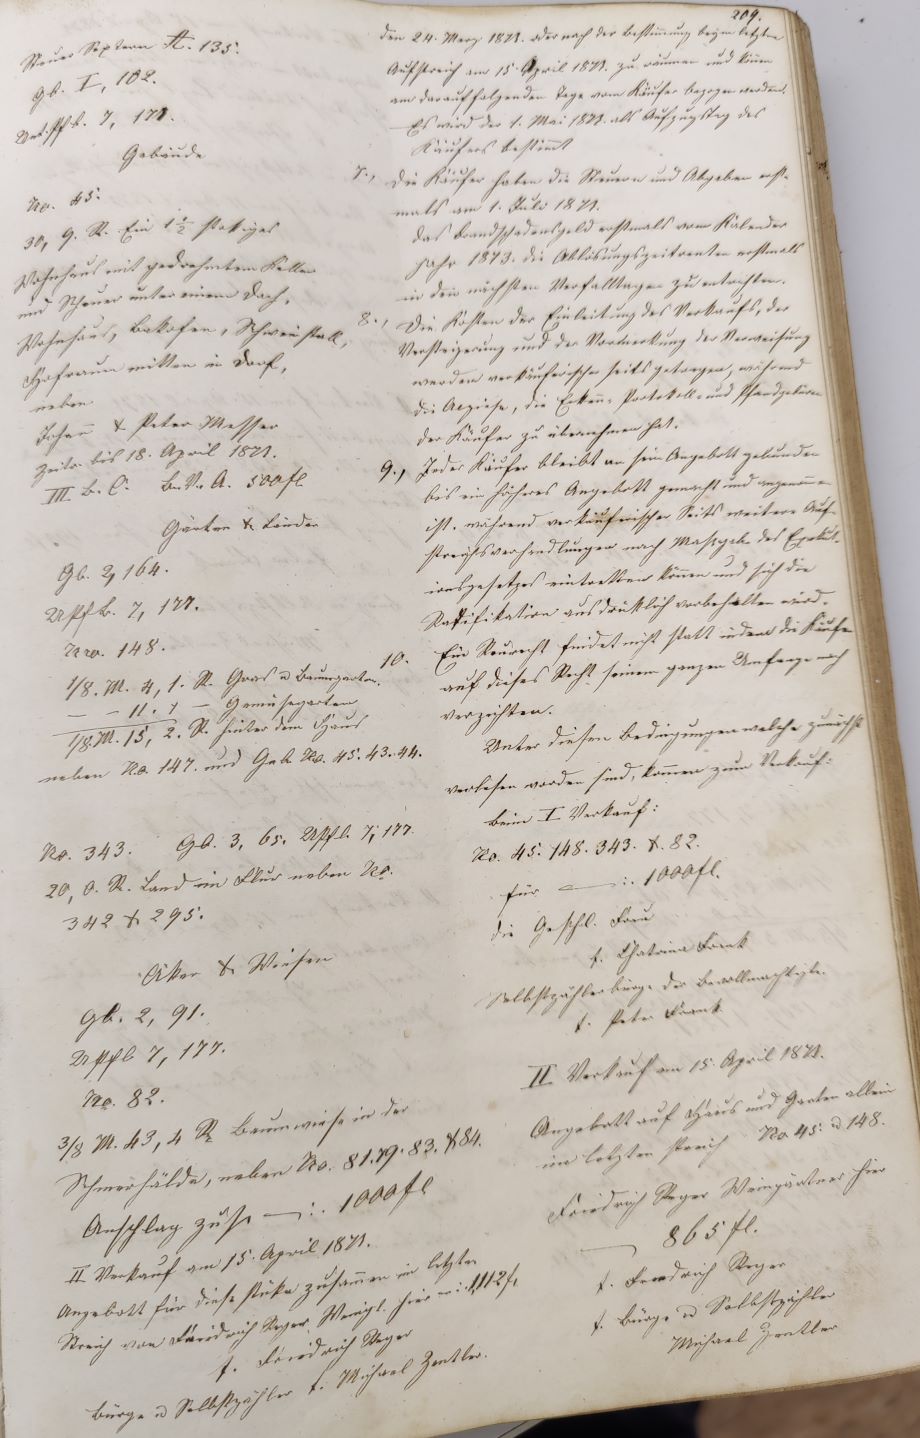 209.
Steuer Septern A. 135.
Gb. I, 102.
Unt.Pf.b. 7, 177.
Gebäude
No. 45.
30, 9. R. Ein 1 1/2 stokiges
Wohnhaus mit gedrehntem Keller
und Scheuer unter einem Dach,
Wohnhaus, Bakofen, Schweinstall,
Hofraum mitten im Dorf,
neben
Johann & Peter Messer
Zeits bis 18. April 1871.
III B. C. B. V. A. 500 fl.
Gärten & Länder
Gb. 2, 164.
UPfb. 7, 177.
Nro. 148.
1/8. M. 4, 1. R. Gras u Baumgarten.
— — 11. 1 — Gemüsegarten
1/8. M. 15, 2. R. hinter dem Haus
neben No. 147. und Geb. No. 45. 43. 44.
No. 343. Gb. 3, 65. UPfb. 7, 177.
20, 0. R. Land im Flur neben No.
342 & 295.
Äker & Wiesen
Gb. 2, 91.
UPfb 7, 177.
No. 82.
3/8 M. 43, 4 R. Baumwiese in der
Schmerhälde, neben No. 81. 79. 83. & 84.
Anschlag zus. —: 1000 fl
II Verkauf am 15. April 1871.
Angebott für diese Stüke zusammen im letzten
Streich von Friedrich Seger, Weingt. hier —: 1,112 f,
t. Friedrich Seger
Bürge u Selbstzähler t. Michael Zentler.
den 24. Merz 1871. oder nach der Bestimmung beym letzten
Aufstreich am 15. April 1871. zu räumen und kann
am darauf folgenden Tage vom Käufer bezogen werden.
Es wird der 1. Mai 1871. als Aufzugstag des
Käufers bestimmt
7., Die Käufer haben die Steuern und Abgaben erst-
mals am 1. Julo 1871.
das Brandschadensgeld erstmals vom Kalender
Jahr 1873. die Ablösungszeitrenten erstmals
in den nächsten Verfalltagen zu entrichten.
8., Die Kosten der Einleitung des Verkaufs, der
Versteigerung und der Vormerkung der Verweisung
werden verkäuferischer seits getragen, während
die Acziese, die Erkenn- Protokoll- und Pfandgebüren
der Käufer zu übernehmen hat.
9., Jeder Käufer bleibt an sein Angebott gebunden
bis ein höheres Angebott gemacht und angenommen
ist. während verkäuferischer Seits weitere Auf-
streichsverhandlungen nach Maßgabe des Exekut-
ionsgesetzes eintretten können und sich die
Ratifikation ausdrüklich vorbehalten wird.
10. Ein Reurecht findet nicht statt indem die Käufer
auf dieses Recht seinem ganzen Umfange nach
verzichten.
Unter diesen Bedingungen welche zunächst
verlesen worden sind, kommen zum Verkauf:
Beim I Verkauf:
No. 45. 148. 343. & 82.
für —: 1000 fl.
die Geschl. Frau
t. Chatrina Frank
Selbstzähler bürge der Bevollmächtigte.
t. Peter Frank
II Verkauf am 15. April 1871.
Angebott auf Haus und Garten allein
im letzten Streich No. 45. u 148.
Friedrich Seger Weingärtner hier
865 fl.
t. Friedrich Seger
t. Bürge u Selbstzähler
Michael Zentler